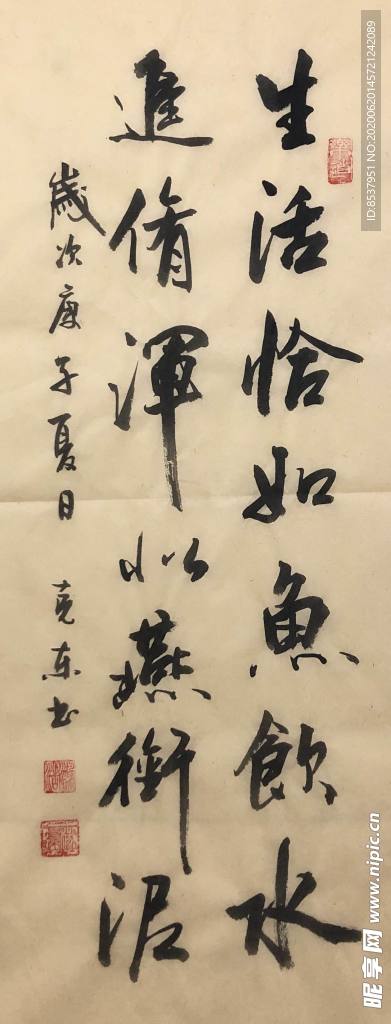 生活恰如魚飲水
進脩渾似燕銜泥
歲次庚子夏日 克東书
ID:8537951 NO:20200620145721242089
昵享网 www.nipic.cn